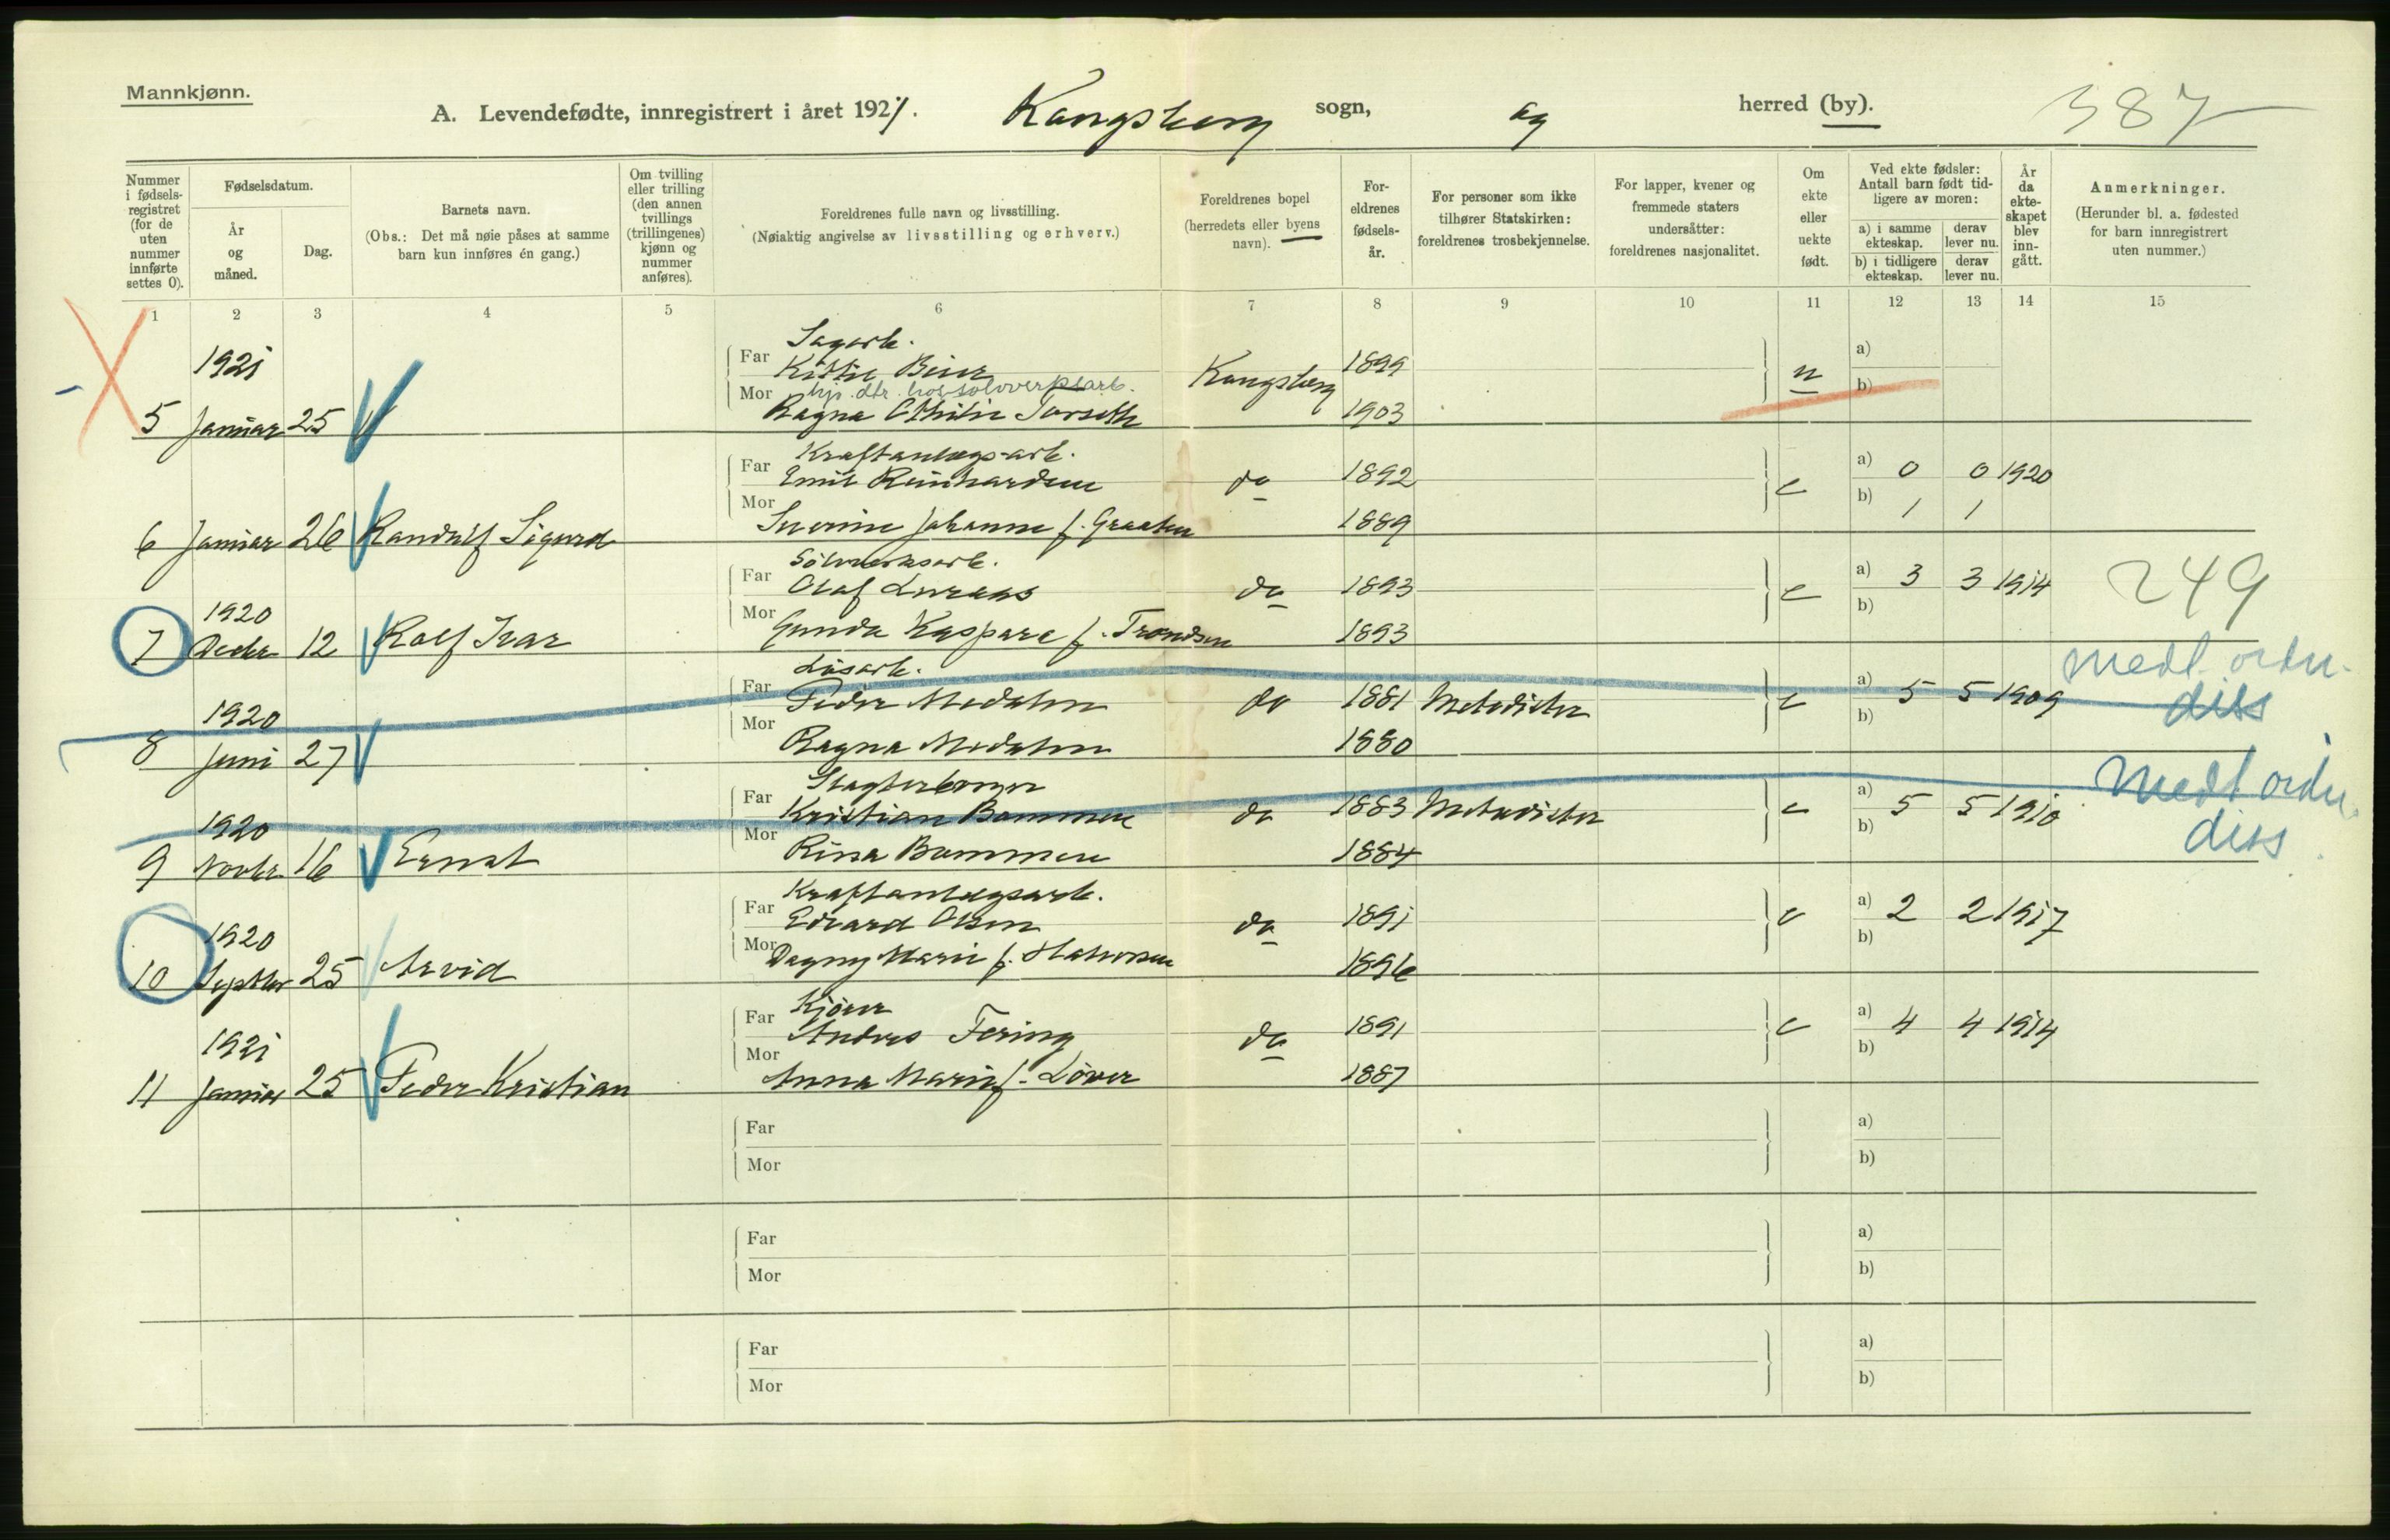 Mannkjønn.
A. Levendefødte, innregistrert i året 1921. Kongsberg sogn, og herred (by). 387
Nummer i fødsels-registret (for de uten nummer innførte settes 0).
Fødselsdatum.
År og måned.
Dag.
Barnets navn.
(Obs.: Det må nøie påses at samme barn kun innføres én gang.)
Om tvilling eller trilling (den annen tvillings (trillingenes) kjønn og nummer anføres).
Foreldrenes fulle navn og livsstilling.
(Nøiaktig angivelse av livsstilling og erhverv.)
Foreldrenes bopel (herredets eller byens navn).
For-eldrenes fødsels-år.
For personer som ikke tilhører Statskirken: foreldrenes trosbekjennelse.
For lapper, kvener og fremmede staters undersåtter: foreldrenes nasjonalitet.
Om ekte eller uekte født.
Ved ekte fødsler: Antall barn født tid-ligere av moren:
a) i samme ekteskap.
derav lever nu.
b) i tidligere ekteskap.
derav lever nu.
År da ekte-skapet blev inn-gått.
Anmerkninger.
(Herunder bl. a. fødested for barn innregistrert uten nummer.)
1 2 3 4 5 6 7 8 9 10 11 12 13 14 15
Sagarb.
1921 Far 1899 a)
Kongsberg u
Mor hj. dtr. hos sølvverksarb. b)
5 Januar 25 Ragna Othilie Torseth 1903
Kraftanlægs-arb.
Far Emil Reinhardsen do 1892 e a) 0 0 1920
Mor b) 1 1
6 Januar 26 Randulf Sigurd Severine Johanne f. Graaten 1889
Sölvverksarb.
Far Olaf Luraas do 1893 e a) 3 3 1914 249
1920 Mor b)
7 Decbr 12 Rolf Ivar Gunda Kaspara f. Trondsen 1893
medt ordn.
Far Peder Medalen do 1881 Metodister e a) 5 5 1909 diss
1920 Mor b)
8 Juni 27 Ragna Medalen 1880
Far Kristian Bammen do 1883 Metodister e a) 5 5 1910 Medt ordn.
1920 Mor b) diss
9 Novbr 16 Ernst Rina Bammen 1884
Kraftanlægsarb.
Far Edvard Olsen do 1891 e a) 2 2 1917
1920 Mor b)
10 Septbr 25 Arvid Dagny Marie f. Halvorsen 1896
Kjörer
Far Anders Fering do 1891 e a) 4 4 1914
1921 Mor b)
11 Januar 25 Peder Kristian Anna Marie f. Löver 1887
Far a)
Mor b)
Far a)
Mor b)
Far a)
Mor b)